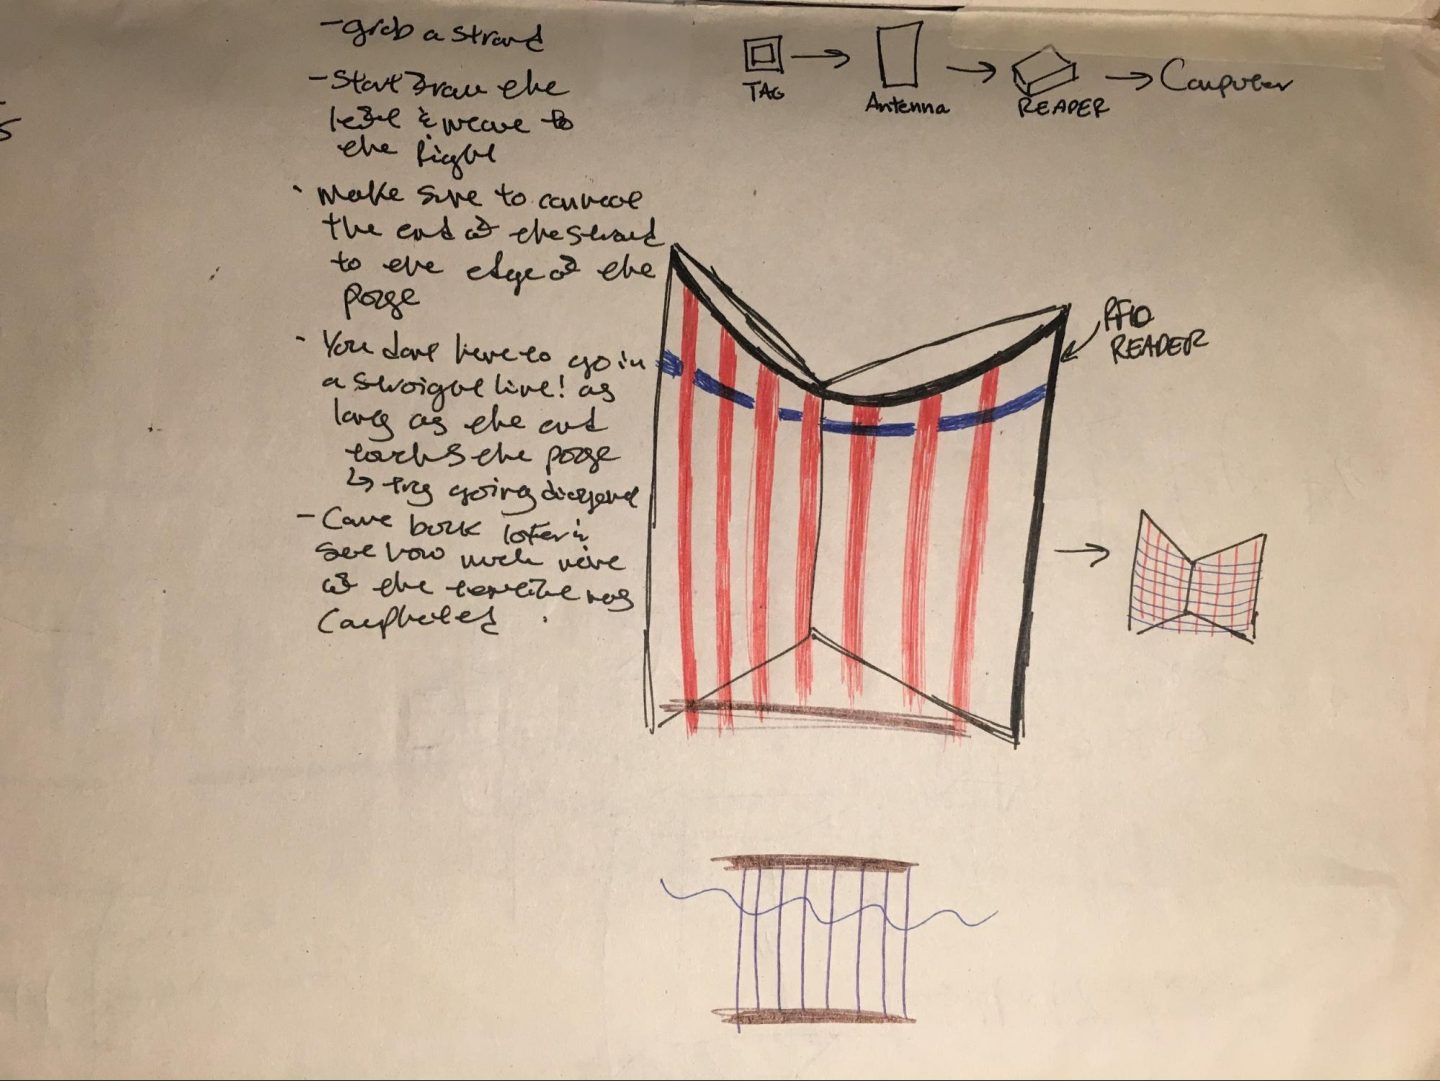 - grab a strand
- Start from the
left & weave to
the Right
• Make sure to connect
the end of the strand
to the edge of the
• You dont have to go in
a straight line! as
long as the end
touches the
↳ try going diagonal
- Come back later &
see how much more
of the was
Completed
TAG → Antenna → READER → Computer
RFID
READER